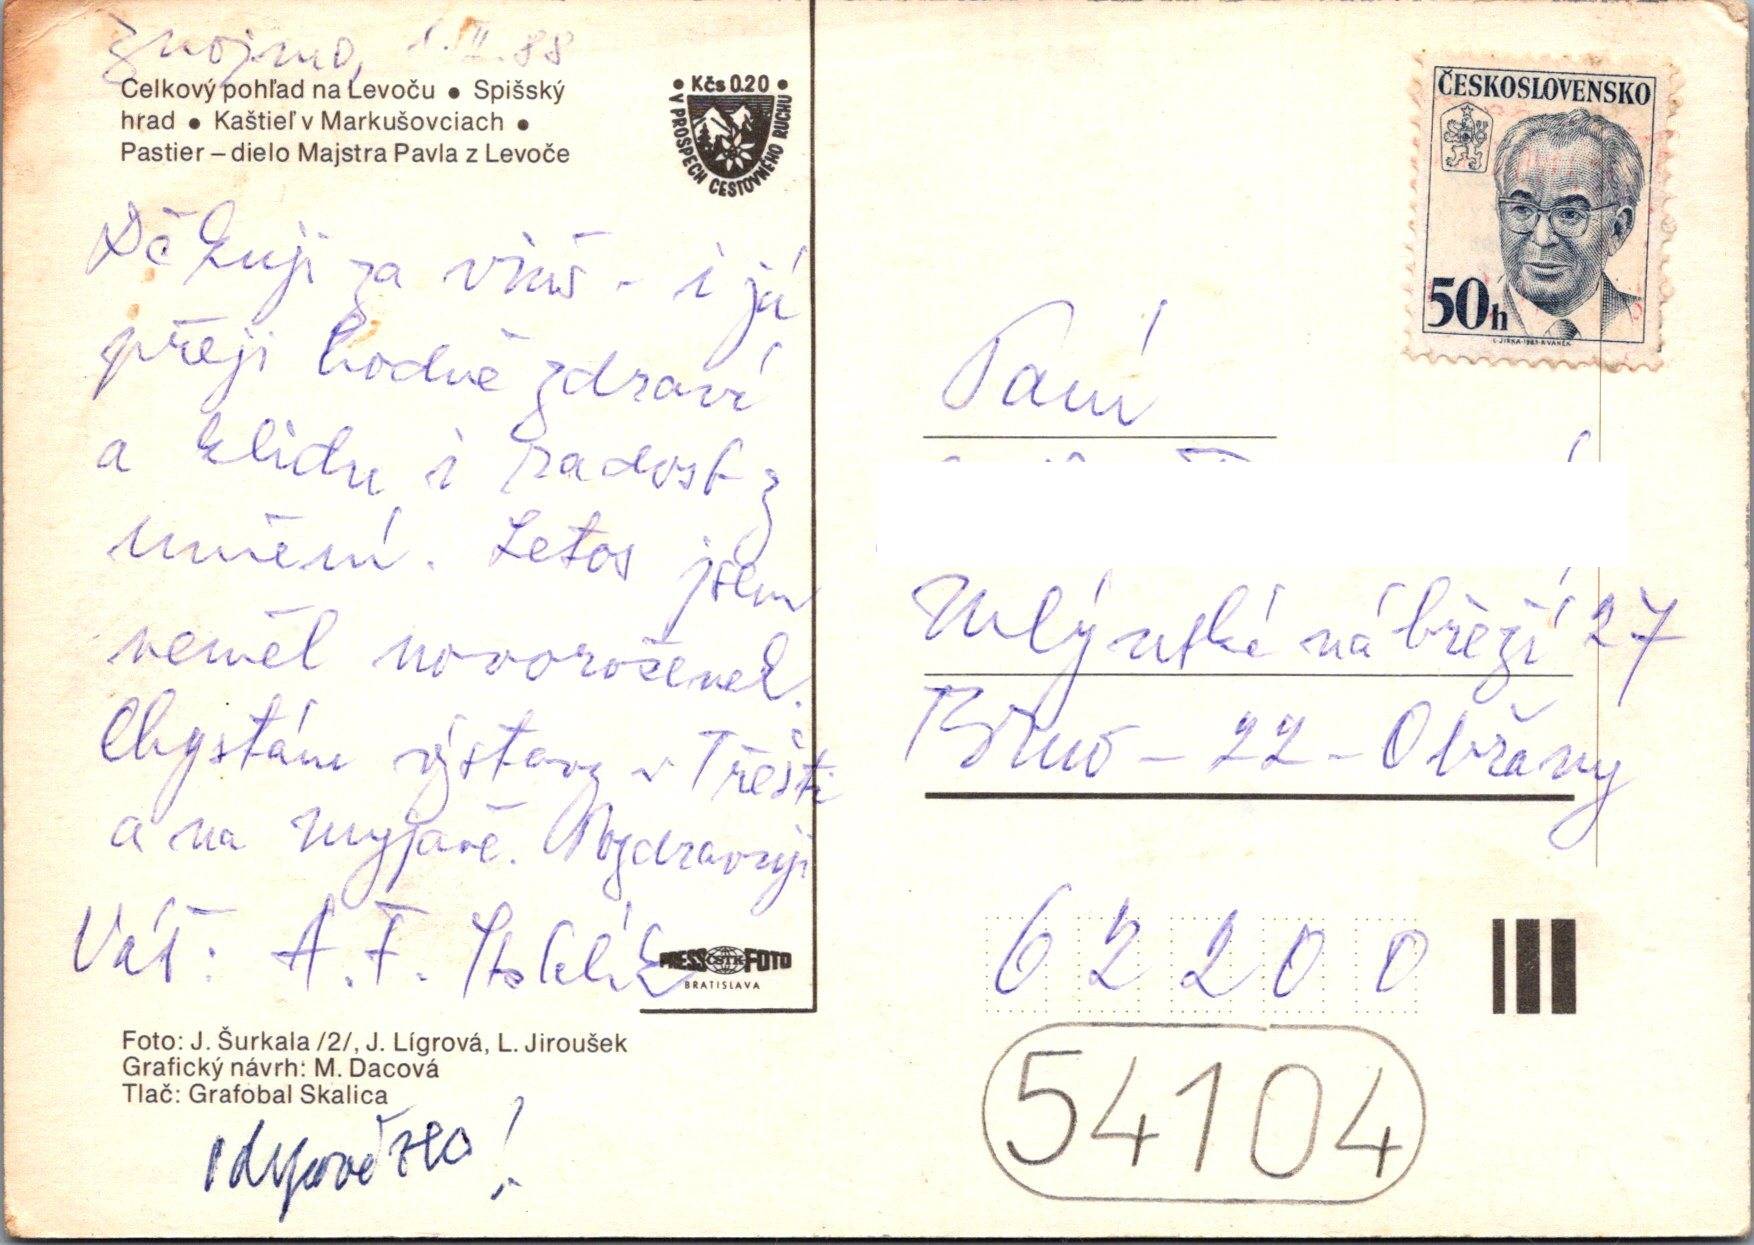 Znojmo, 1. II. 88
Celkový pohľad na Levoču ● Spišský
hrad ● Kaštieľ v Markušovciach ●
Pastier – dielo Majstra Pavla z Levoče
● Kčs 0.20 ●
V PROSPECH CESTOVNÉHO RUCHU
ČESKOSLOVENSKO
50h
I. JIRKA-1983-R. VANĚK
Děkuji za
- i já
přeji hodně zdraví
a klidu i radost z
umění. Letos jsem
neměl novoročenek.
Chystám výstavy v Třešti
a na Myjavě. Pozdravuji
Váš: A. F.
PRESS ČSTK FOTO
BRATISLAVA
Foto: J. Šurkala /2/, J. Lígrová, L. Jiroušek
Grafický návrh: M. Dacová
Tlač: Grafobal Skalica
odpovězeno!
Paní
Mlýnské nábřeží 27
Brno - 22 - Obřany
62200
54104